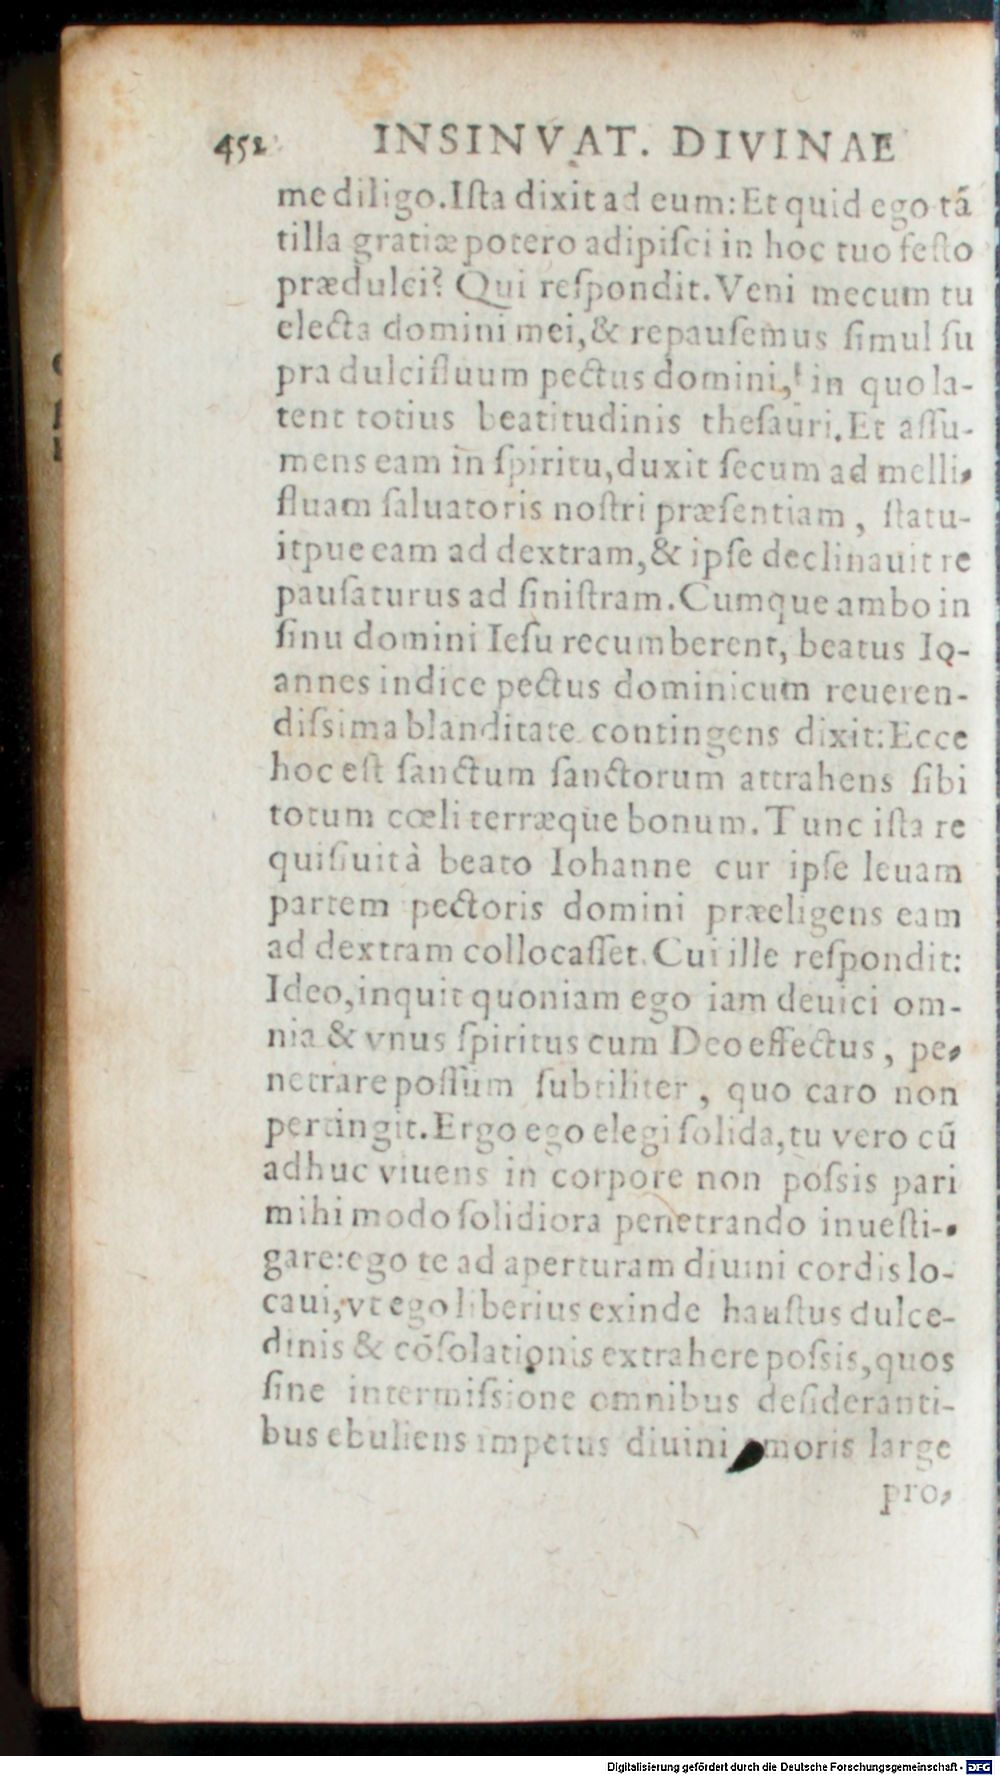 452 INSINVAT. DIVINAE
me diligo. Iſta dixit ad eum: Et quid ego tā
tilla gratiæ potero adipiſci in hoc tuo feſto
prædulci? Qui reſpondit. Veni mecum tu
electa domini mei, & repauſemus ſimul ſu
pra dulcifluum pectus domini, in quo la-
tent totius beatitudinis theſauri. Et aſſu-
mens eam in ſpiritu, duxit ſecum ad melli-
fluam ſaluatoris noſtri præſentiam, ſtatu-
itpue eam ad dextram, & ipſe declinauit re
pauſaturus ad ſiniſtram. Cumque ambo in
ſinu domini Ieſu recumberent, beatus Io-
annes indice pectus dominicum reueren-
diſsima blanditate contingens dixit: Ecce
hoc eſt ſanctum ſanctorum attrahens ſibi
totum cœli terræque bonum. Tunc iſta re
quiſiuit à beato Iohanne cur ipſe leuam
partem pectoris domini præeligens eam
ad dextram collocaſſet. Cui ille reſpondit:
Ideo, inquit quoniam ego iam deuici om-
nia & vnus ſpiritus cum Deo effectus, pe-
netrare poſſum ſubtiliter, quo caro non
pertingit. Ergo ego elegi ſolida, tu vero cū
adhuc viuens in corpore non poſsis pari
mihi modo ſolidiora penetrando inueſti-
gare: ego te ad aperturam diuini cordis lo-
caui, vt ego liberius exinde hauſtus dulce-
dinis & cōſolationis extrahere poſsis, quos
ſine intermiſsione omnibus deſideranti-
bus ebuliens impetus diuini amoris large
pro-
Digitalisierung gefördert durch die Deutsche Forschungsgemeinschaft - DFG